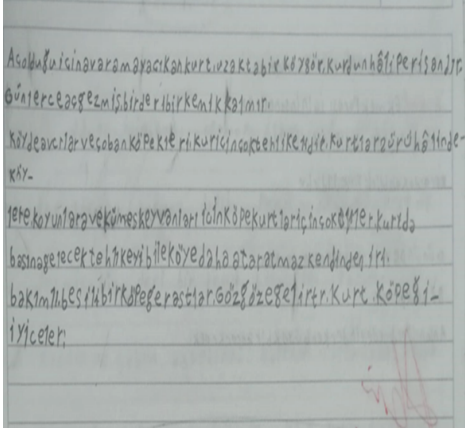 Açolduğuiçinavaramayaçıkankurt.uzaktabirköygör.kurdunhâliperişandır.
Günlerceaçgezmişbirderibirkemikkalmır.
Köydeavcılarveçobanköpekleri.kuriçinçoktehlikelidir.kurtlarzoruhâlinde-
köy-
lerekoyunlaravekümeskeyvanları içinköpekurtlariçinço kurtda
basınagelecektehlikeyibileköyedahaataratmazkendinden iri.
bakımlıbesilibirköpegerastlar.Gözgözegelirtr.kurt.köpeği-
iyiceler.